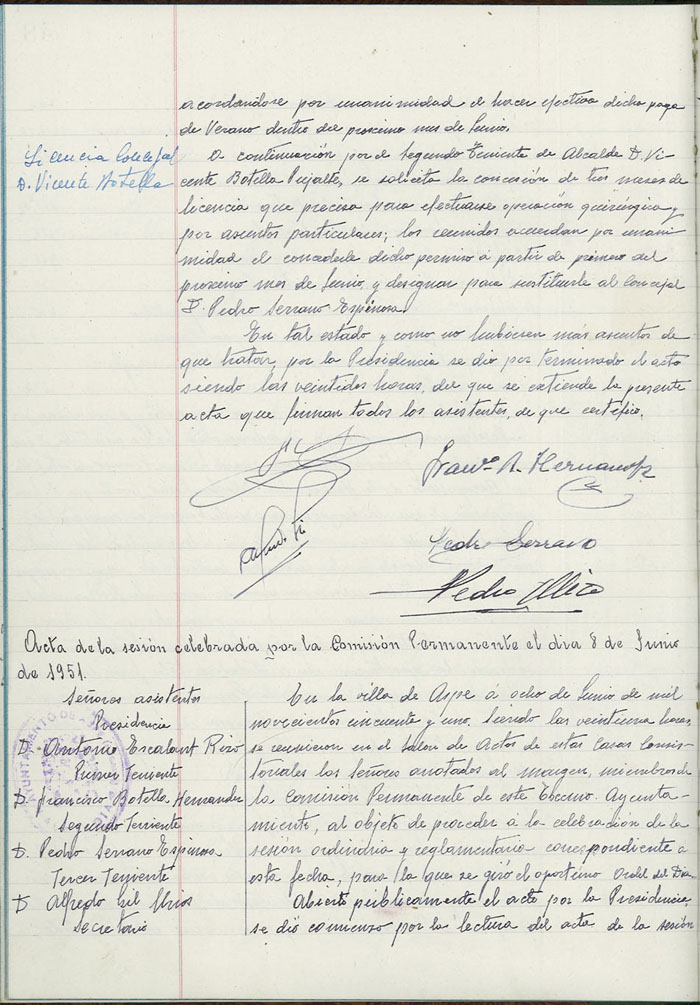 acordándose por unanimidad el hacer efectiva dicha paga
de Verano dentro del proximo mes de Junio.
Licencia Concejal
D. Vicente Botella
A continuación por el Segundo Teniente de Alcalde D. Vi-
cente Botella Pujalte, se solicita la concesión de tres meses de
licencia que precisa para efectuarse operación quirúrgica y
por asuntos particulares; los reunidos acuerdan por unani-
midad el concederle dicho permiso á partir de primero del
proximo mes de Junio, y designar para sustituirle al Concejal
D. Pedro Serrano Espinosa.
En tal estado y como no hubiesen más asuntos de
que tratar, por la Presidencia se dió por terminado el acto
siendo las veintidos horas, del que se extiende la presente
acta que firman todos los asistentes, de que certifico.
Hernandez
Pedro Serrano
Pedro
Acta de la sesión celebrada por la Comisión Permanente el dia 8 de Junio
de 1951.
Señores asistentes
Presidencia
D. Antonio Escalant Rizo
Primer Teniente
D. Francisco Botella Hernander
Segundo Terriente
D. Pedro Serrano Espinosa
Tercer Teniente
D Alfredo Gil
Secretario
En la villa de Aspe á ocho de Junio de mil
novecientos cincuenta y uno, siendo las veintiuna horas,
se reunieron en el Salon de Actos de estas Casas Consis-
toriales los señores anotados al margen, miembros de
la Comisión Permanente de este Excmo. Ayunta-
miento, al objeto de proceder á la celebración de la
sesión ordinaria y reglamentaria correspondiente á
esta fecha, para la que se giró el oportuno Ordel del Dia.
Abierto públicamente el acto por la Presidencia,
se dió comienzo por la lectura del acta de la sesión